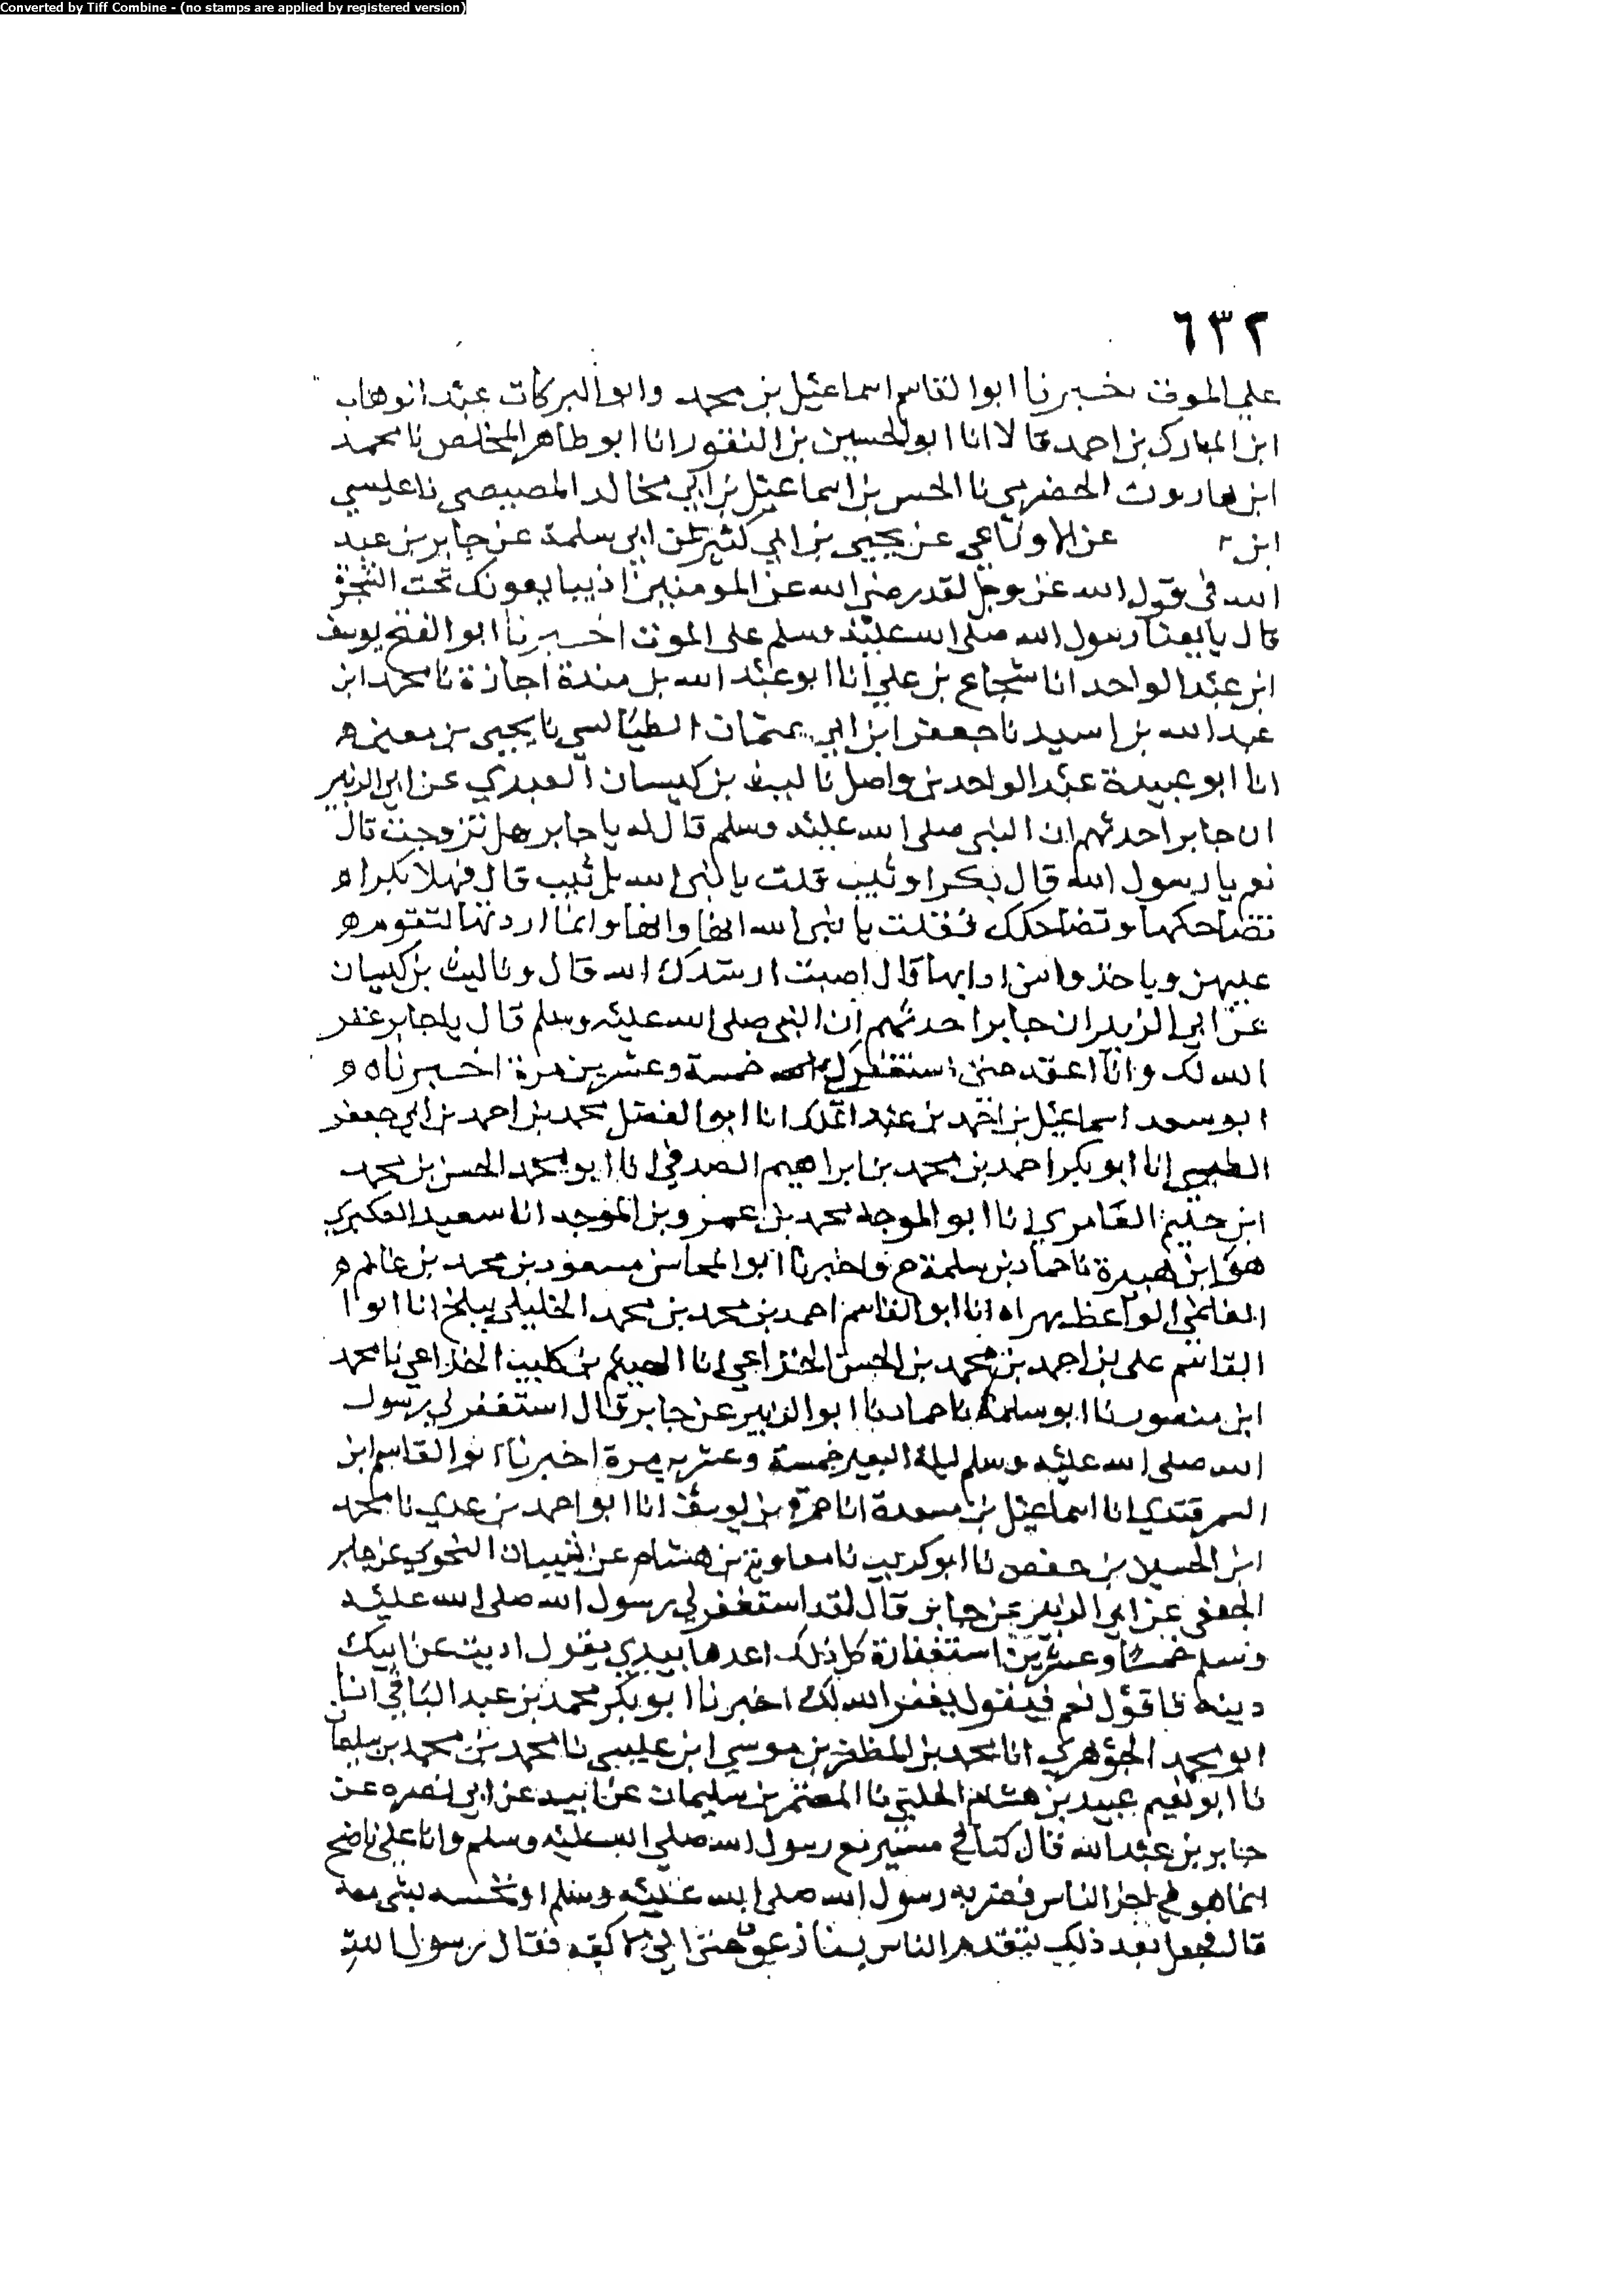 Converted by Tiff Combine - (no stamps are applied by registered version)
٦٣٢
على الموت اخبرنا ابوالقاسم اسماعيل بن محمد وابوالبركات عبد الوهاب
ابن المبارك بن احمد قالا انا ابوالحسين بن النقور انا ابوطاهر المخلص نا محمد
ابن هاروت الحضرمي نا الحسن بن اسماعيل بن ابي مخالد المصيصي نا عيسي
ابن عن الاوزاعي عن يحيى بن ابي كثير عن ابي سلمة عن جابر بن عبد
الله في قول الله عز وجل لقد رضي الله عن المومنين اذ يبايعونك تحت الشجرة
قال بايعنا رسول الله صلى الله عليه وسلم على الموت اخبرنا ابوالفتح يوسف
ابن عبد الواحد انا شجاع بن علي انا ابوعبد الله بن مندة اجازة نا محمد ابن
عبد الله بن اسيد نا جعفر ابن ابي عثمان الطيالسي نا يحيى بن معين ه
انا ابوعبيدة عبد الواحد بن واصل نا ليث بن كيسان العبدي عن ابي الزبير
ان جابرا حدثهم ان النبي صلى الله عليه وسلم قال له يا جابر هل تزوجت قال
نعم يا رسول الله قال بكرا وثيب قلت يا نبي الله بل ثيب قال فهلا بكرا ه
تضاحكها وتضاحكك فقلت يا نبي الله وانما اردتها لتقوم ه
عليهن قال اصبت ارشدك الله قال ونا ليث بن كيسان
عن ابي الزبير ان جابرا حدثهم ان النبي صلى الله عليه وسلم قال يا جابر غفر
الله لك وانا اعقد حتى استغفر لي خمسة وعشرين مرة اخبرناه و
ابوسعد اسماعيل بن احمد بن عبد الملك انا ابوالفضل محمد بن احمد بن ابي جعفر
الطبسي انا ابوبكر احمد بن محمد بن ابراهيم الصدفي انا ابومحمد الحسن بن محمد
ابن حليم العامري انا ابوالموجه محمد بن عمرو بن الموجه انا سعيد العكبري
هو ابن هبيرة نا حماد بن سلمة ح واخبرنا ابوالمحاسن مسعود بن محمد بن غانم ه
الغانمي الواعظ بهراه انا ابوالقاسم احمد بن محمد بن محمد الخليلي ببلخ انا ابوا
القاسم على بن احمد بن محمد بن الحسن الخزاعي انا الهيثم بن كليب الخزاعي نا محمد
ابن منصور نا ابوسلمة نا حماد نا ابوالزبير عن جابر قال استغفر لي رسول
الله صلى الله عليه وسلم ليلة البعير خمسة وعشرين مرة اخبرنا ابوالقاسم ابن
السمرقندي انا اسماعيل بن مسعدة انا حمزة بن يوسف انا ابواحمد بن عدي نا محمد
ابن الحسين بن حفص نا ابوكريب نا معاوية بن هشام عن شيبان النحوي عن جابر
الجعفي عن ابي الزبير عن جابر قال لقد استغفر لي رسول الله صلى الله عليه
وسلم خمسا وعشرين استغفارة كل ذلك اعدها بيدي يقول اديت عن ابيك
دينه فاقول نعم فيقول يغفر الله لك اخبرنا ابوبكر محمد بن عبد الباقي انا
ابومحمد الجوهري انا محمد بن المظفر بن موسي ابن عيسى نا محمد بن محمد بن سليمان
نا ابونعيم عبيد بن هشام الحلبي نا المعتمر بن سليمان عن ابيه عن ابي نصره عن
جابر بن عبد الله قال كنا في مسير مع رسول الله صلى الله عليه وسلم وانا على ناضح
انما هو في اخر الناس فضربه رسول الله صلى الله عليه وسلم او نخسه بشي معه
قال فجعل بعد ذلك يتقدم الناس ينازعني حتى اني لا كفه فقال رسول الله